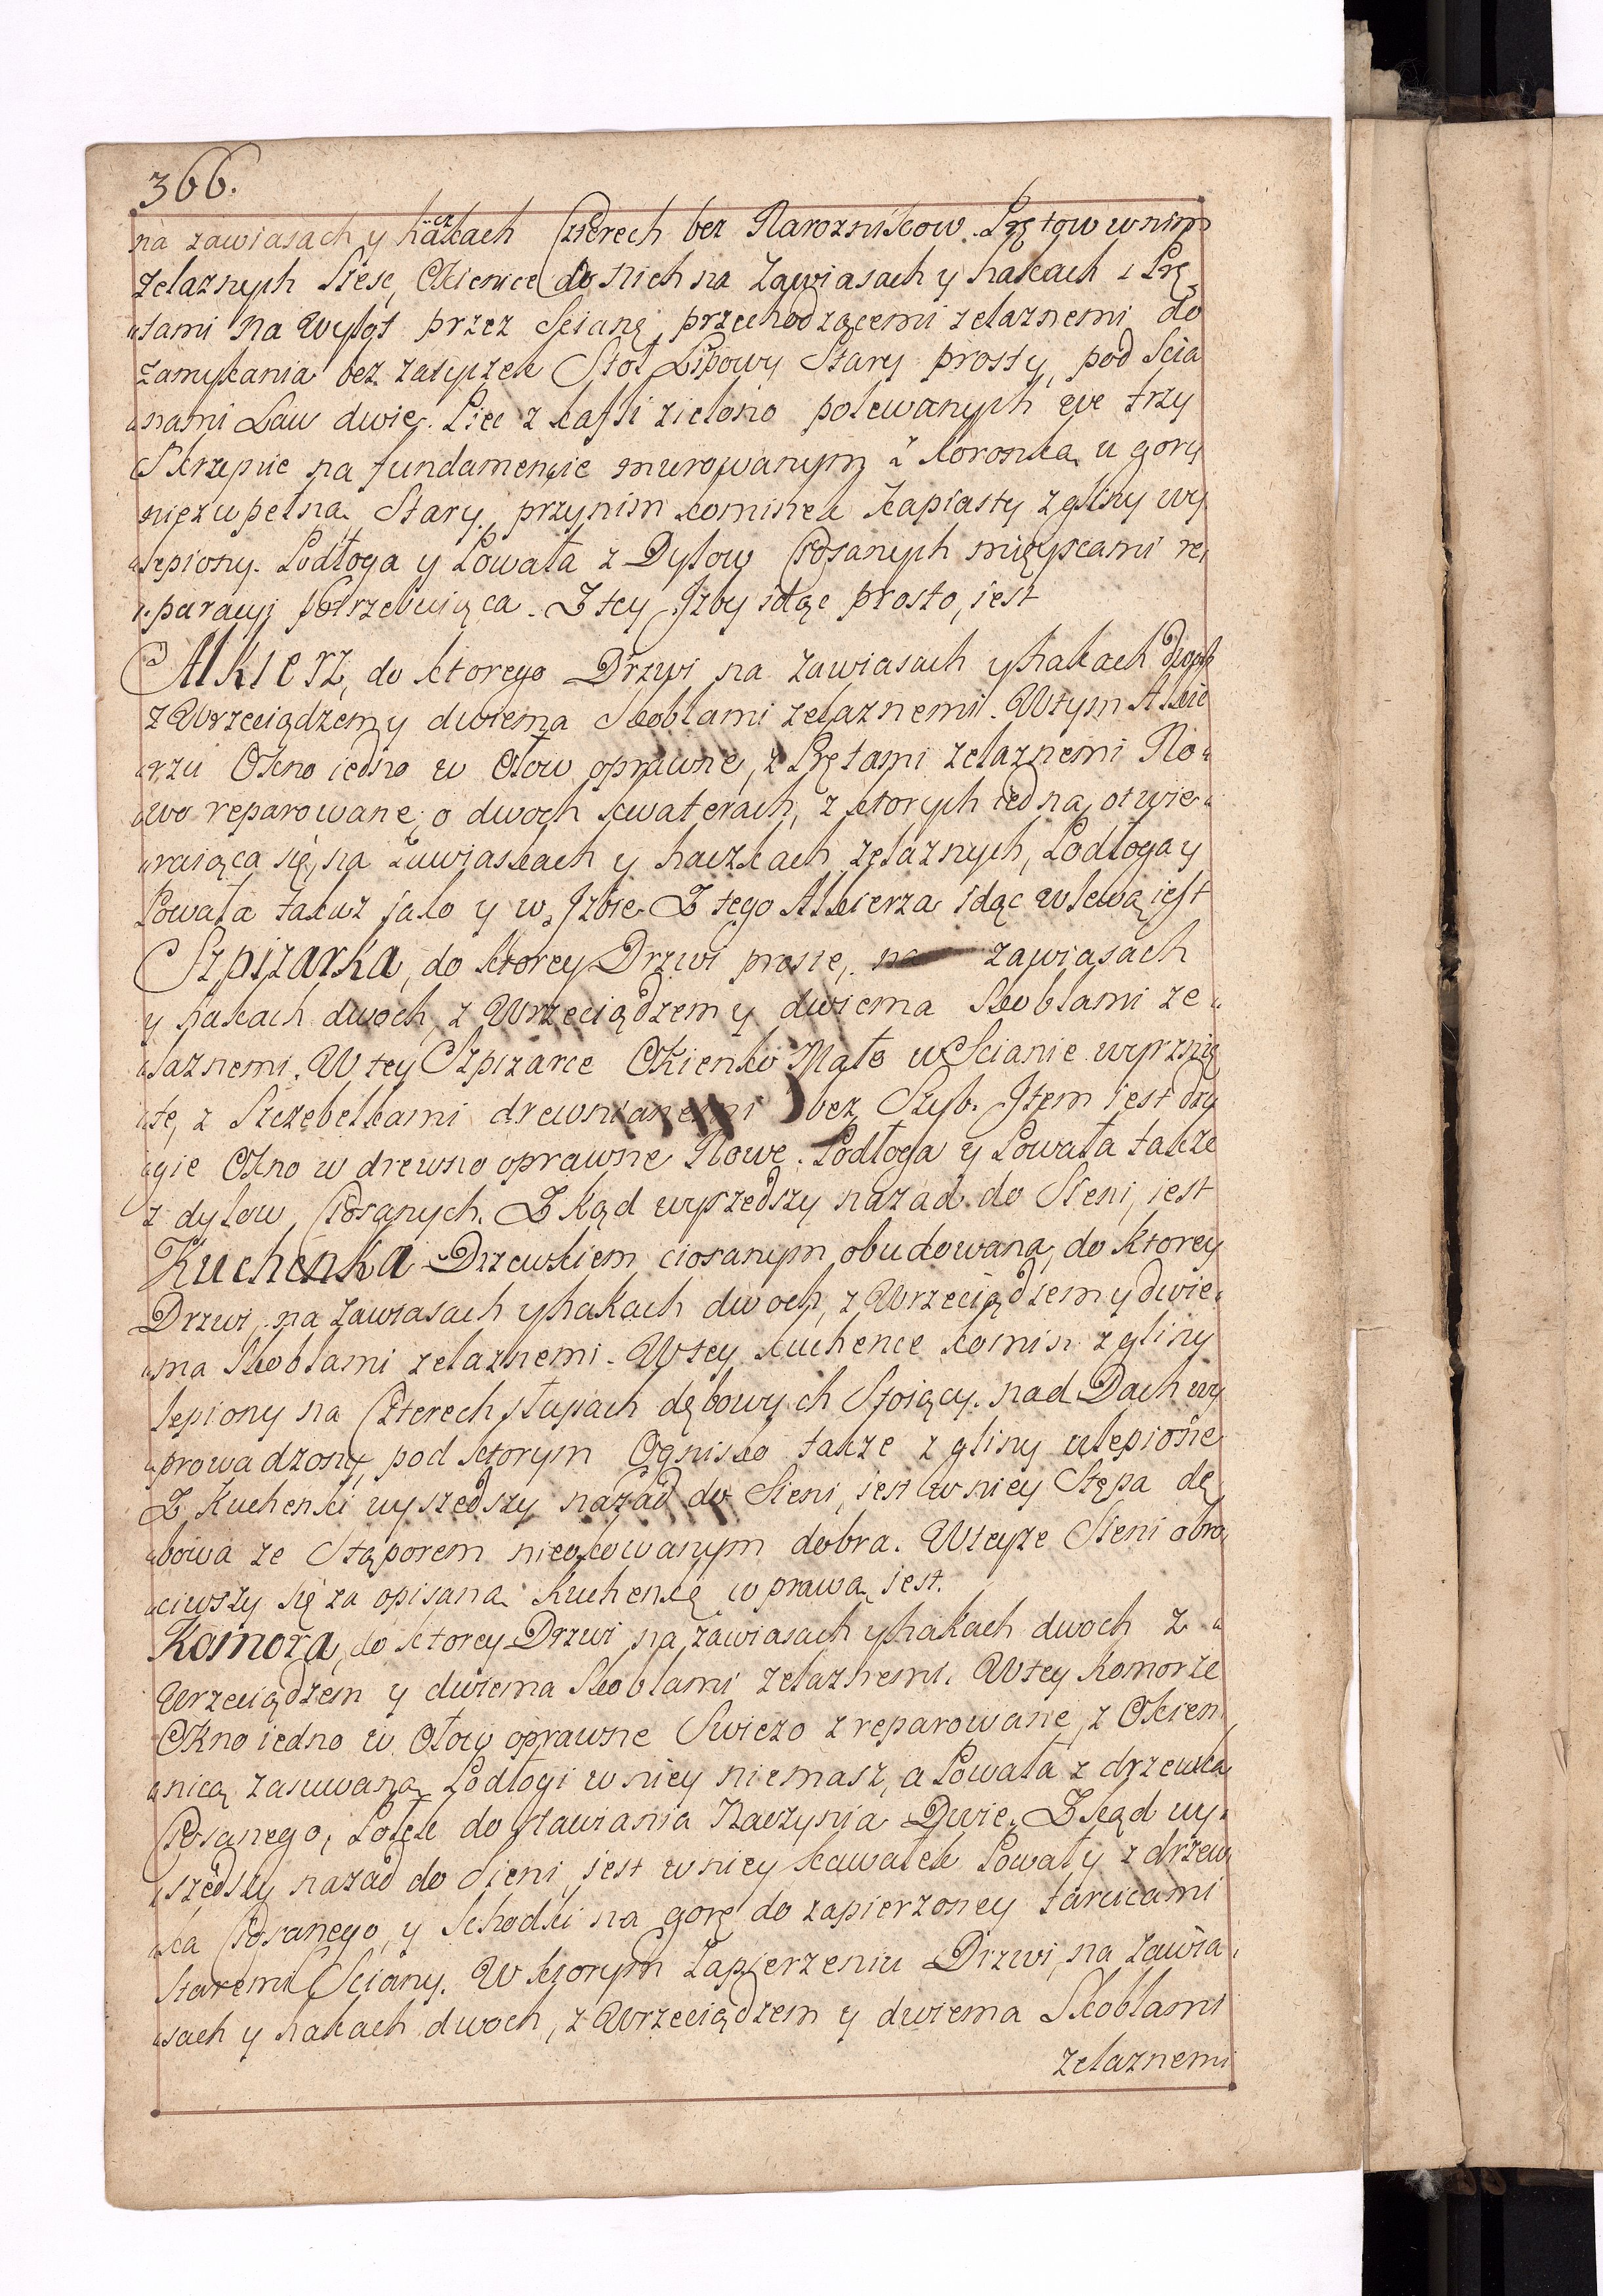 366.
na zawiasach y haczkach Czterech bez Naroznikow. Prętow w nim
zelaznych Szesc, Okienice do nich na Zawiasach y hakach z Prę„
„tami na wylot przez Scianę przechodzącemi zelaznemi do
zamykania bez zatyczek Stoł Lipowy Stary prosty, pod Scia
„nami Ław dwie. Piec z kafli zielono polewanych we trzy
Skrzynie na fundamencie murowanym z koronką u gory
niezupełną Stary, przynim kominek kapiasty z gliny wy
„lepiony. Podłoga y Powała z Dylow Ciosanych mieyscami re„
„paracyi potrzebuiąca. Z tey Izby idąc prosto, jest
Alkierz, do ktorego Drzwi na zawiasach y hakach dwoch
z Wrzeciądzem y dwiema Skoblami zelaznemi. W tym Alkie
„rzu Okno iedno w Ołow oprawne, z Prętami zelaznemi No„
„wo reparowane, o dwoch kwaterach, z ktorych iedna otwie„
„raiąca się, na Zawiaskach y haczkach zelaznych, Podłoga y
Powała takaz jako y w Izbie. Z tego Alkierza idąc w lewą jest
Szpizarka, do ktorey Drzwi proste, na zawiasach
y hakach dwoch, z Wrzeciądzem y dwiema Skoblami ze„
„laznemi. W tey Szpizarce Okienko Małe w Scianie wyrznię
„te, z Szczebelkami drewnianemi bez Szyb. Item iest dru
„gie Okno w drewno oprawne Nowe. Podłoga y Powała takze
z dylow Ciosanych. Z kąd wyszedszy nazad do Sieni, jest
Kuchenka Drzewkiem ciosanym obudowana, do ktorey
Drzwi, na zawiasach y hakach dwoch, z Wrzeciądzem y dwie„
„ma Skoblami zelaznemi. W tey kuchence komin z gliny
lepiony na Czterech słupach dębowych Stoiący. nad Dach wy
„prowadzony, pod ktorym Ognisko takze z gliny ulepione
Z Kuchenki wyszedszy nazad do Sieni, jest w niey Stępa dę
„bowa ze Stąporem nieokowanym dobra. W teyze Sieni obro
„ciwszy się za opisaną Kuchenkę w prawą jest.
Komora, do ktorey Drzwi na zawiasach y hakach dwoch z„
Wrzeciądzem y dwiema Skoblami zelaznemi. W tey Komorze
Okno iedno w Ołow oprawne Swiezo zreparowane, z Okien„
„nicą zasuwaną Podłogi w niey niemasz, a Powała z drzewka
Ciosanego, Połek do stawiania Naczynia Dwie. Zkąd wy„
„szedszy nazad do Sieni, jest w niey kawałek Powały z drzew
„ka Ciosanego, y Schodki na gorę do zapierzoney tarcicami
Staremi Sciany. W ktorym Zapierzeniu Drzwi, na Zawia„
„sach y hakach dwoch, z Wrzeciądzem y dwiema Skoblami
zelaznemi